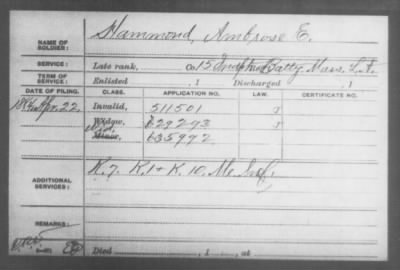 NAME OF SOLDIER: Hammond, Ambrose E.
SERVICE: Late rank, Co. 15 Unattached Batty. Mass. L.A.
TERM OF SERVICE: Enlisted , 1 Discharged , 1
DATE OF FILING. CLASS. APPLICATION NO. LAW. CERTIFICATE NO.
Apr. 22, Invalid, 511501 x
Widow, 623293 x
Wid. Minor, 635992
ADDITIONAL SERVICES: K. 7. K. 1 + K. 10. Me. Inf.
REMARKS:
Died , 1 , at